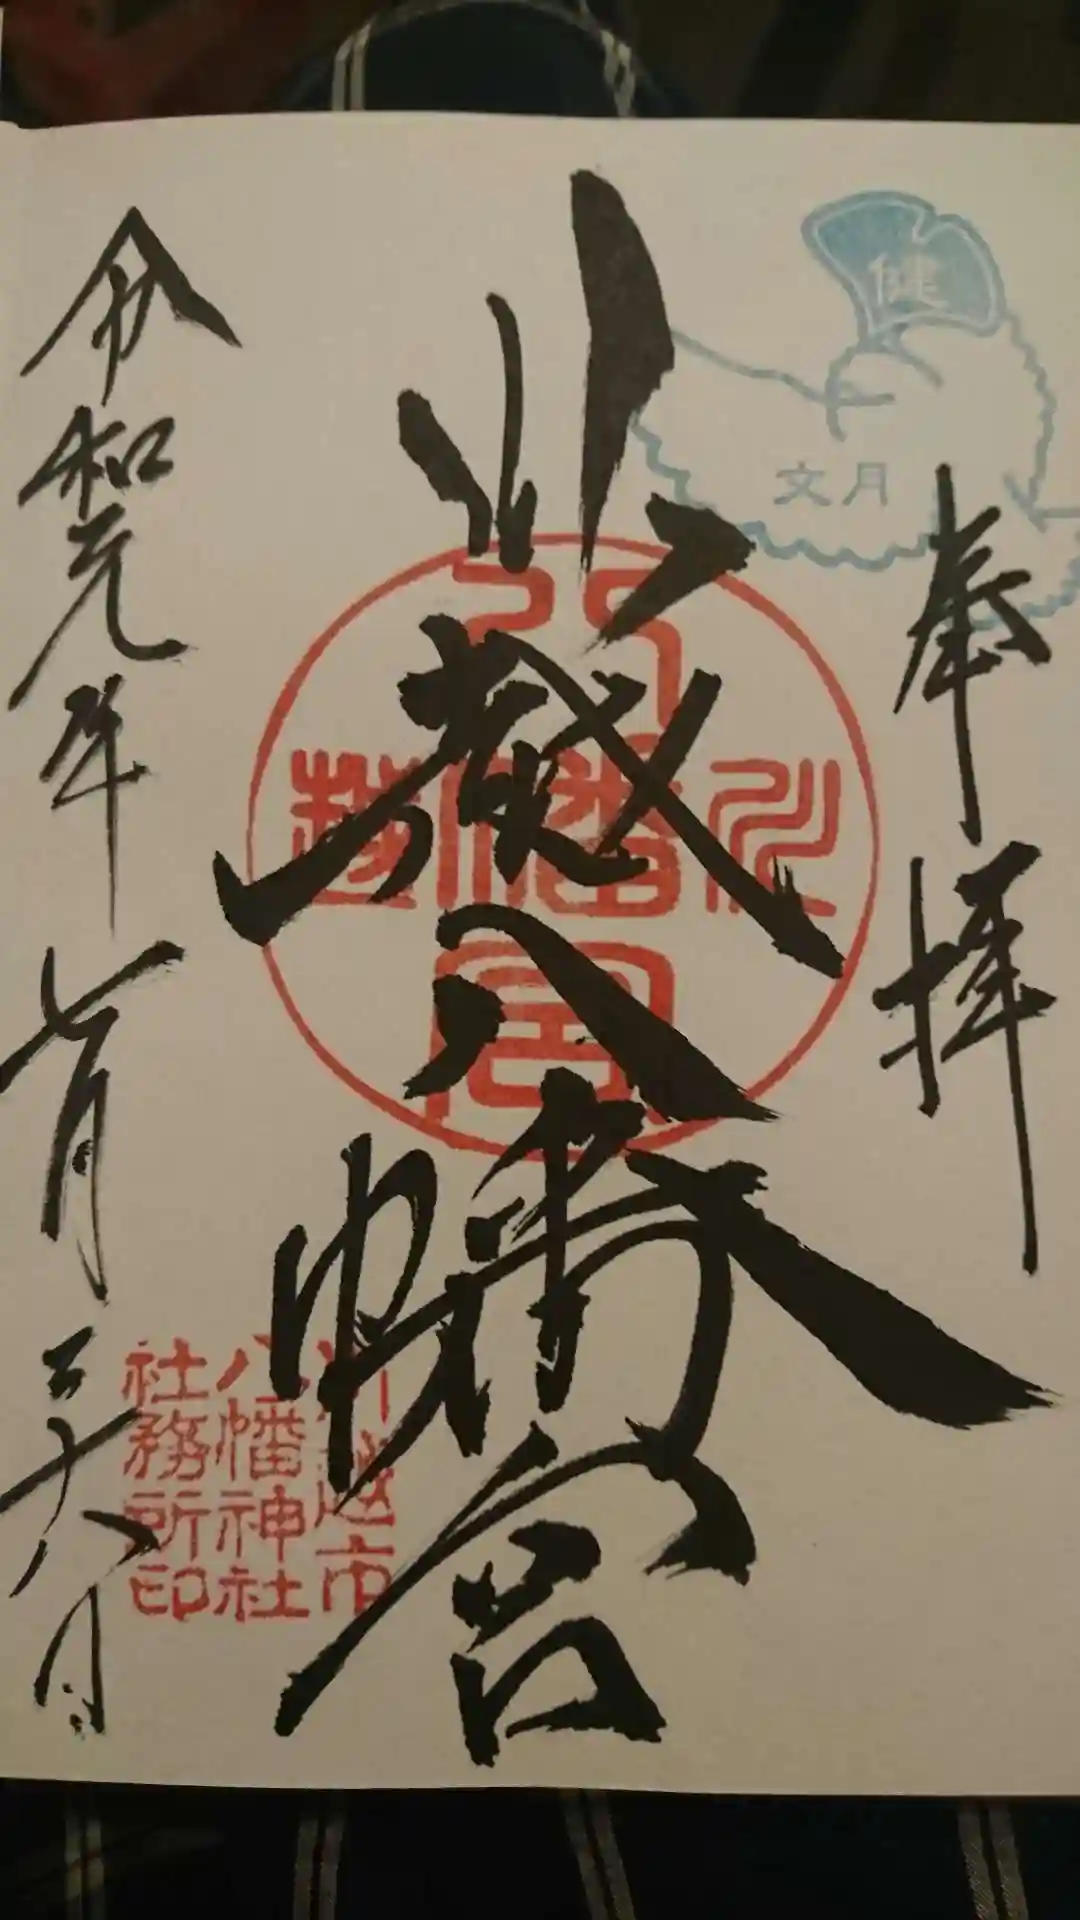 健
文月
奉拝
川越八幡宮
川越
八幡宮
川越市
八幡神社
社務所印
令和元年七月二十八日